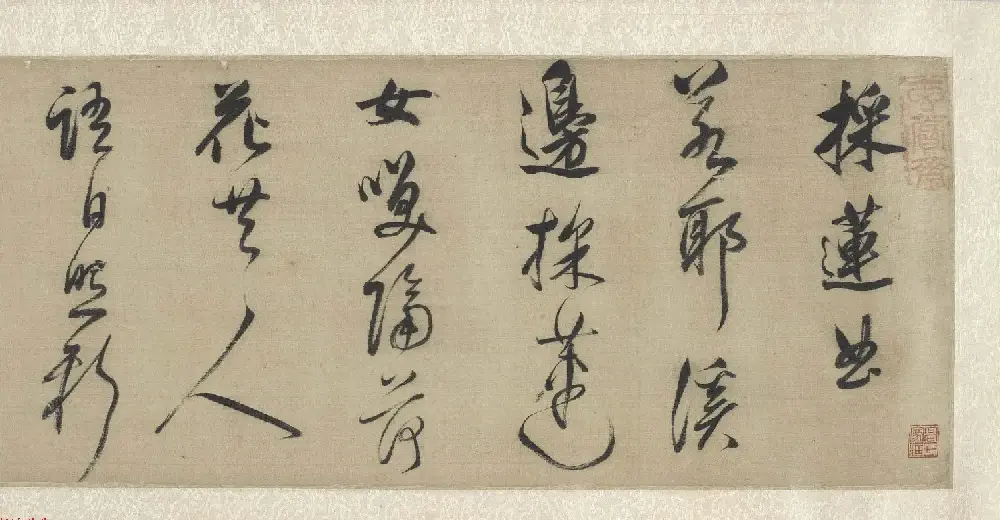 採蓮曲
若耶溪
邊採蓮
女嘆隔荷
花共人
語日照新